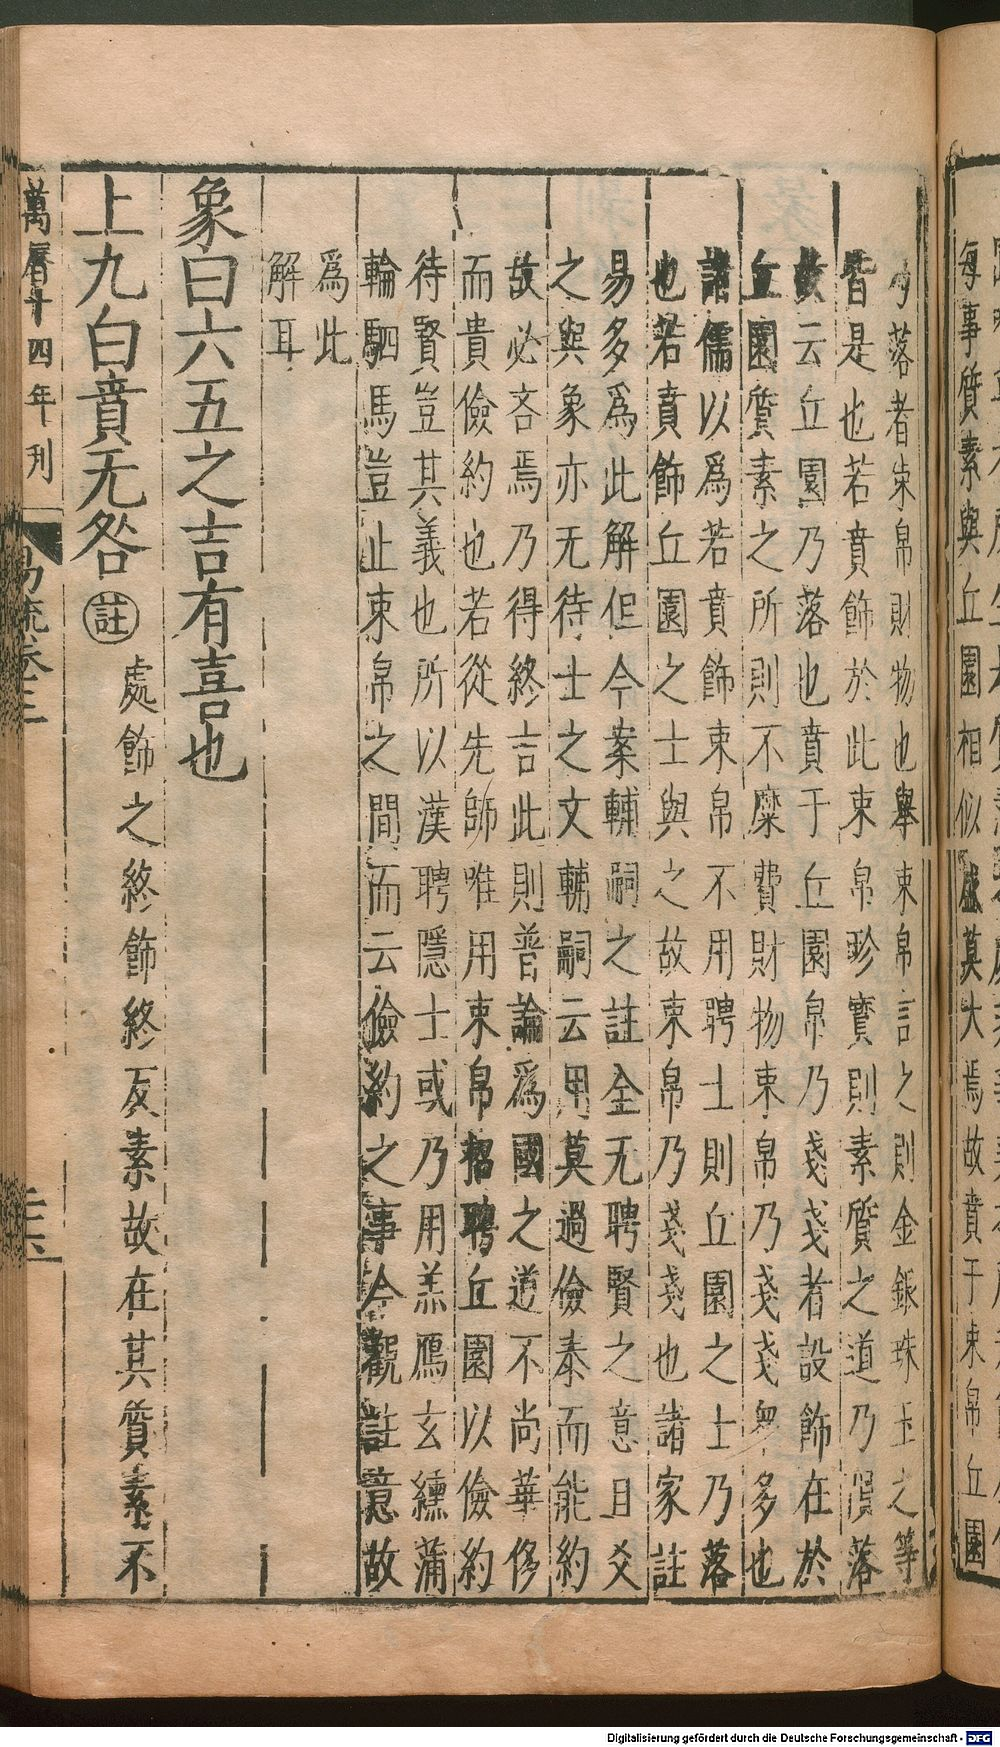 每事質素與丘園相似盛莫大焉故賁于束帛丘園
乃落者束帛財物也舉束帛言之則金銀珠玉之等
皆是也若賁飾於此束帛珍寶則素質之道乃隕落
故云丘園乃落也賁于丘園帛乃戔戔者設飾在於
丘園質素之所則不糜費財物束帛乃戔戔眾多也
諸儒以爲若賁飾束帛不用聘士則丘園之士乃落
也若賁飾丘園之士與之故束帛乃戔戔也諸家註
易多爲此解但今案輔嗣之註全无聘賢之意且爻
之與象亦无待士之文輔嗣云用莫過儉泰而能約
故必吝焉乃得終吉此則普論爲國之道不尚華侈
而貴儉約也若從先師唯用束帛招聘丘園以儉約
待賢豈其義也所以漢聘隱士或乃用羔鴈玄纁蒲
輪駟馬豈止束帛之間而云儉約之事今觀註意故
爲此
解耳
象曰六五之吉有喜也
上九白賁无咎註處飾之終飾終反素故在其質素不
萬曆十四年刊 易疏卷三
Digitalisierung gefördert durch die Deutsche Forschungsgemeinschaft - DFG